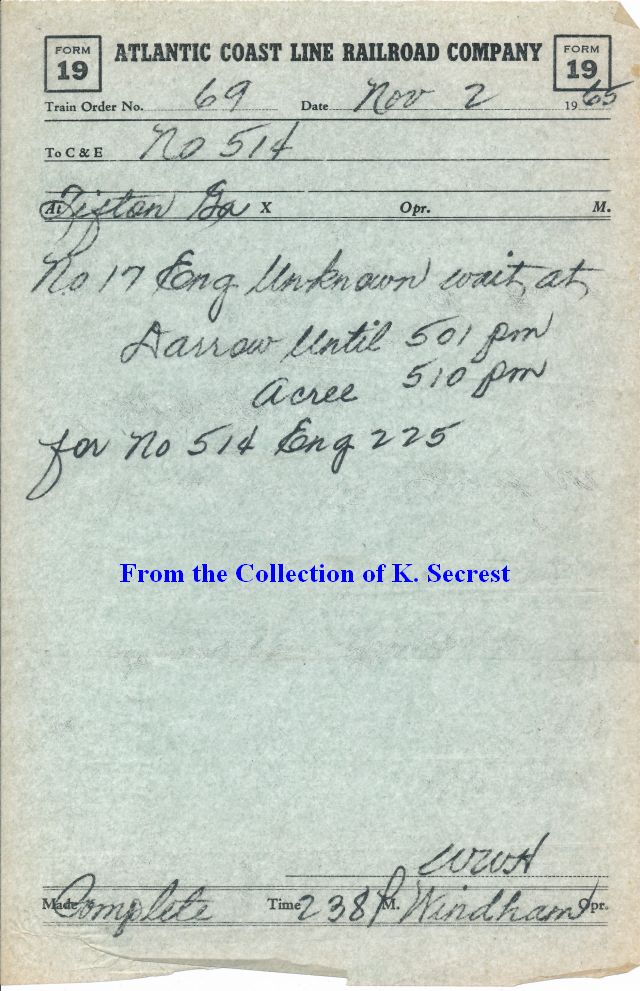 FORM 19 ATLANTIC COAST LINE RAILROAD COMPANY FORM 19
Train Order No. 69 Date Nov 2 1965
To C & E No 514
At Tifton Ga X Opr. M.
No 17 Eng Unknown wait at
Darrow Until 501 pm
Acree 510 pm
for No 514 Eng 225
From the Collection of K. Secrest
WWH
Made Complete Time 238 P M. Windham Opr.